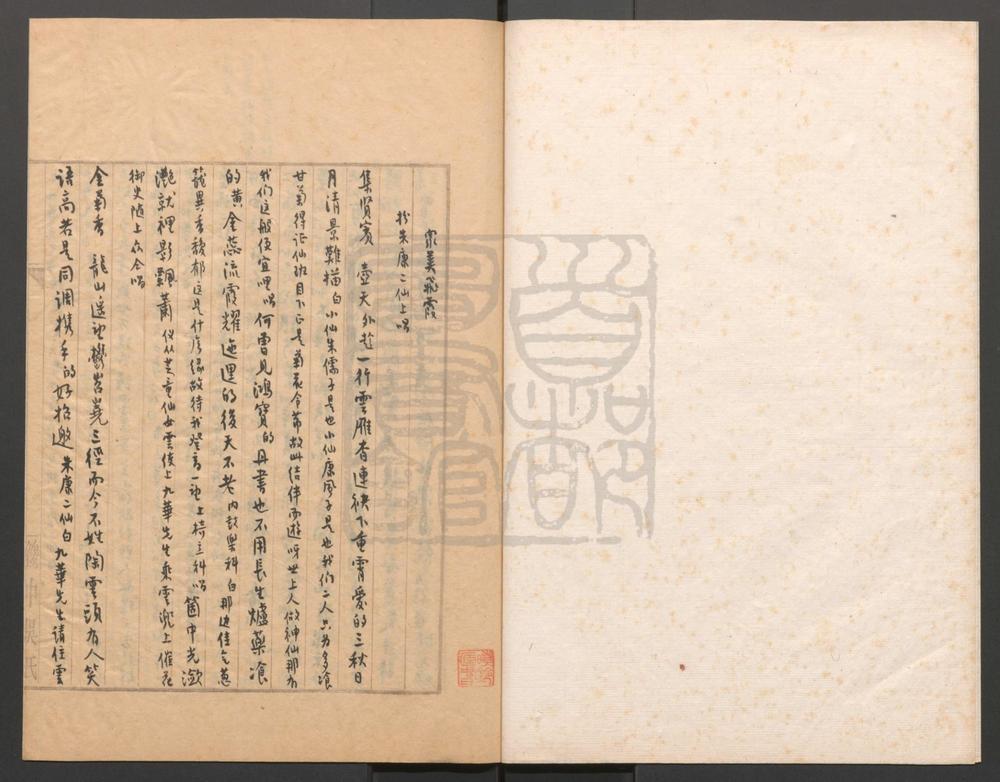 扮朱康二仙上唱
集賢賓 壺天外趁一行雲雁杳連袂下重霄愛的三秋日
月清景難描白小仙朱儒子是也小仙康風子是也我們二人只為多飡
甘菊得証仙班目下正是菊花令節故此結伴而遊呀世上人做神仙那有
我们這般便宜哩唱何曾見鴻寶的丹書也不用長生爐藥飡
的黄金蕊流霞耀迤逗的後天不老内鼓樂科白那边佳气葱
籠異香馥郁這是什広缘故待我登高一望上椅立科唱箇中光瀲
灧就裡影飄蕭仪从芝童仙女雲使上九華先生乘雲興上催花
御史随上众合唱
金菊香 龍山遥望鬱岧嶤三徑而今不姓陶雲頭有人笑
语高若是同調携手的好招邀 朱康二仙白九華先生請住雲